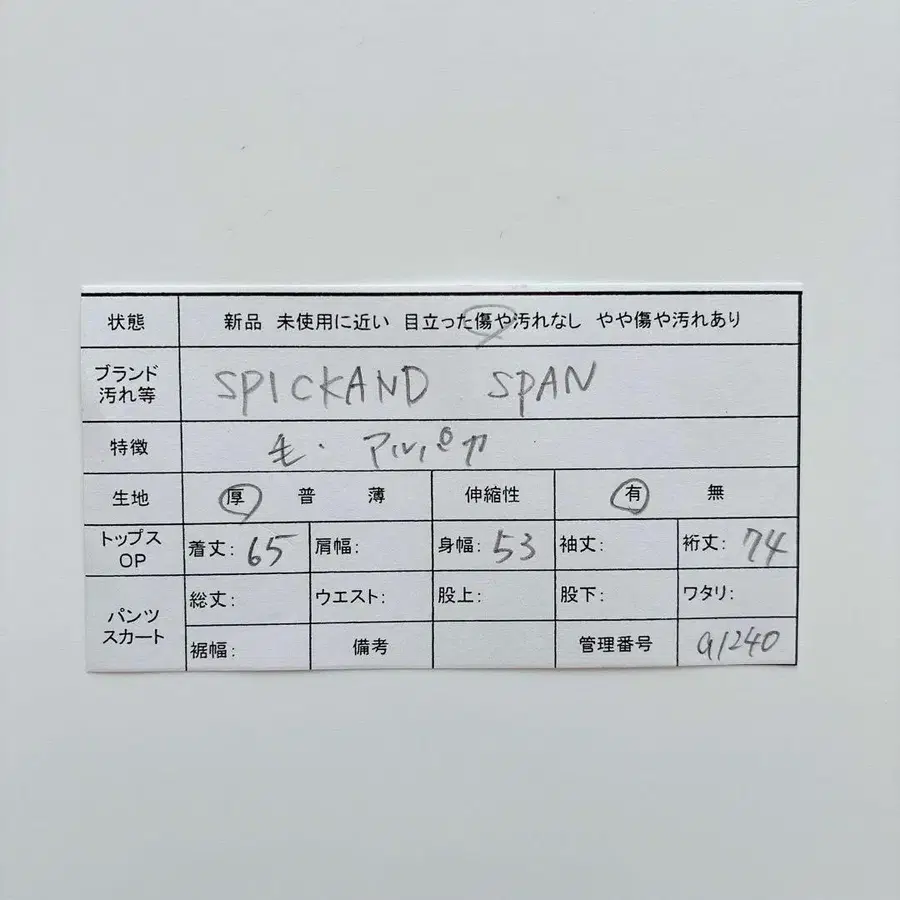 状態 新品 未使用に近い 目立った傷や汚れなし やや傷や汚れあり
ブランド
汚れ等 SPICKAND SPAN
特徴 毛・アルパカ
生地 厚 普 薄 伸縮性 有 無
トップス
OP 着丈: 65 肩幅: 身幅: 53 袖丈: 裄丈: 74
パンツ
スカート 総丈: ウエスト: 股上: 股下: ワタリ:
裾幅: 備考 管理番号 G1240